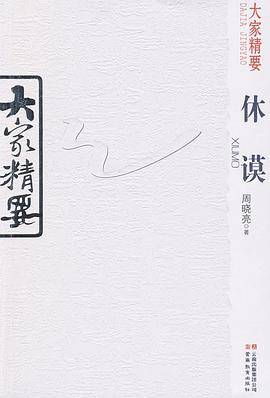 大家精要
DAJIA JINGYAO
休谟
XIUMO
周晓亮◎著
大家精要
云南出版集团公司
云南教育出版社